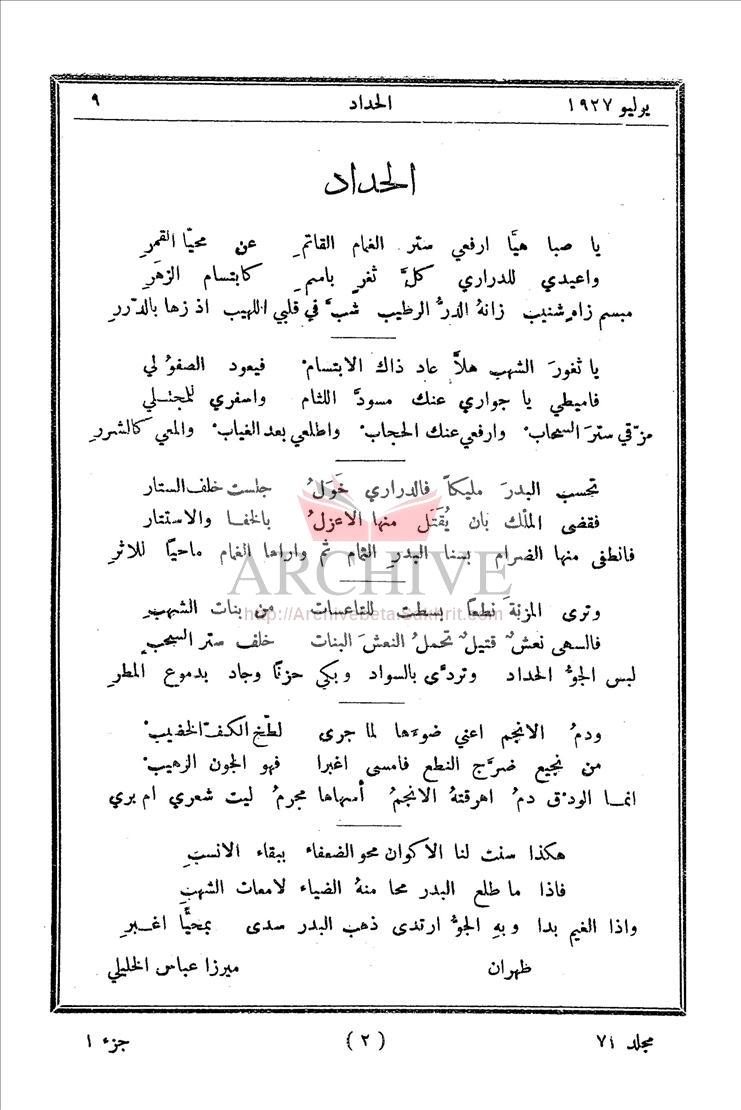 يوليو ١٩٢٧ الحداد ٩
الحداد
يا صبا هيّا ارفعي ستر الغمام القاتمِ عن محيّا القمرِ
واعيدي للدراري كلَّ ثغرٍ باسمِ كابتسام الزهَرِ
مبسم زاهٍ شنيب زانهُ الدرُّ الرطيب شبَّ في قلبي اللهيب اذ زها بالدّررِ
يا ثغورَ الشهب هلاَّ عاد ذاك الابتسامْ فيعود الصفوُ لي
فاميطي يا جواري عنك مسودَّ اللثام واسفري للمجتلي
مزّقي سترَ السحابْ وارفعي عنك الحجابْ واطلعي بعد الغيابْ والمعي كالشررِ
تحسب البدرَ مليكاً فالدراري خَوَلُ جلست خلف الستار
فقضى الملْك بان يُقتَل منها الاعزلُ بالخفا والاستتار
فانطفى منها الضرام بسنا البدرِ التمام ثم واراها الغمام ماحيًا للاثرِ
ARCHIVE
http://Archivebeta.Sakhrit.com
وترى المزنةَ نطعاً بسطت للتاعسات من بنات الشهبِ
فالسهى نعشٌ قتيلٌ تحملُ النعشَ البنات خلف ستر السحبِ
لبس الجوُّ الحداد وتردَّى بالسواد وبكي حزنًا وجاد بدموع المطرِ
ودمُ الانجم اعني ضوءها لما جرى لطّخ الكفّ الخضيبْ
من نجيع ضرَّج النطع فامسى اغبرا فهو الجون الرهيبْ
انما الودْق دمُ اهرقتهُ الانجمُ أسهاها مجرمُ ليت شعري ام بري
هكذا سنت لنا الاكوان محو الضعفاء ببقاء الانسبِ
فاذا ما طلع البدر محا منهُ الضياء لامعات الشهبِ
واذا الغيم بدا وبهِ الجوُّ ارتدى ذهب البدر سدى بمحيًّا اغبرِ
ظهران ميرزا عباس الخليلي
مجلد ٧١ ( ٢ ) جزء ١